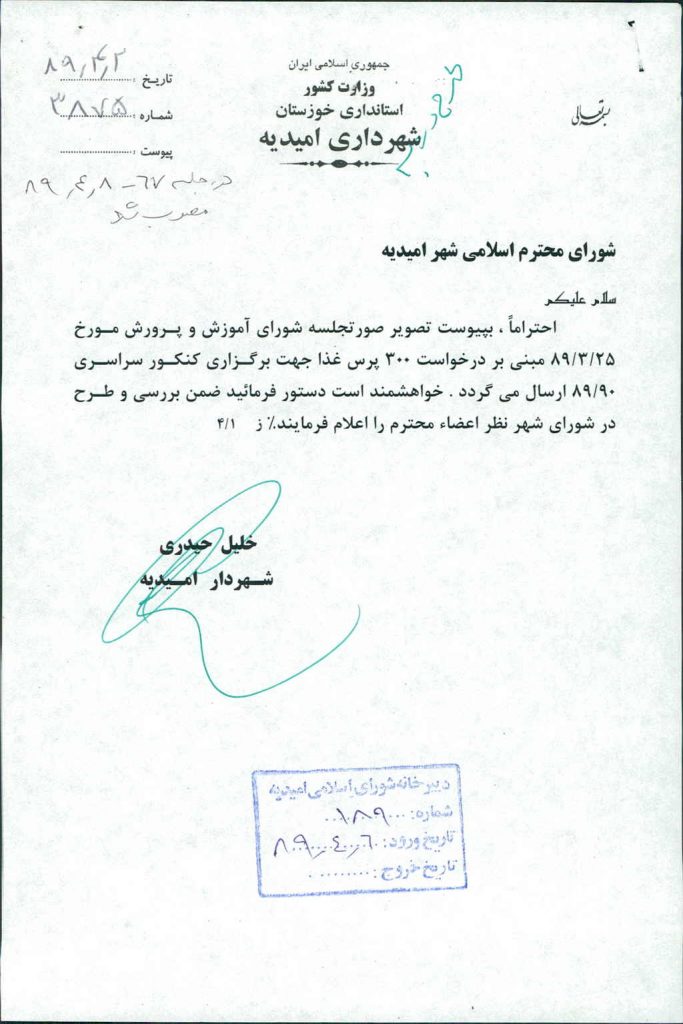 بسمه تعالی
جمهوری اسلامی ایران
وزارت کشور
استانداری خوزستان
شهرداری امیدیه
تاریخ : ۸۹٫۴٫۲
شماره : ۳۸۷۵
پیوست :
در جلسه ۶۷ - ۸۹٫۴٫۸
مصوب شد
شورای محترم اسلامی شهر امیدیه
سلام علیکم
احتراماً ، بپیوست تصویر صورتجلسه شورای آموزش و پرورش مورخ
۸۹/۳/۲۵ مبنی بر درخواست ۳۰۰ پرس غذا جهت برگزاری کنکور سراسری
۸۹/۹۰ ارسال می گردد . خواهشمند است دستور فرمائید ضمن بررسی و طرح
در شورای شهر نظر اعضاء محترم را اعلام فرمایند٪ ز ۴/۱
خلیل حیدری
شهردار امیدیه
دبیرخانه شورای اسلامی امیدیه
شماره : ۱۰۸۹
تاریخ ورود : ۸۹٫۴٫۶
تاریخ خروج :